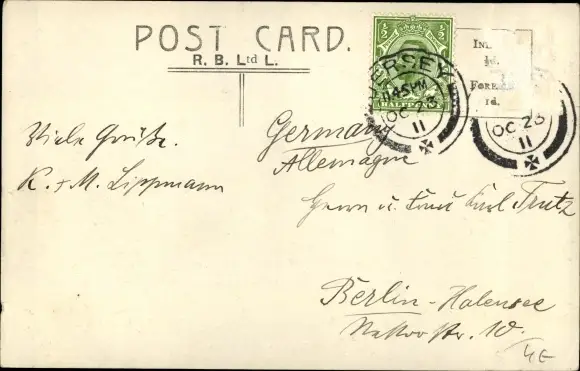 POST CARD.
R. B. Ltd L.
½ ½
HALFPENNY
JERSEY
11.45 PM
OC 23
11
½d.
FOREIGN
1d.
OC 23
11
Viele Grüße.
K. & M. Lippmann
Germany
Allemagne
Herrn u. Frau Karl Trutz
Berlin-Halensee
Nestorstr. 10.
4E